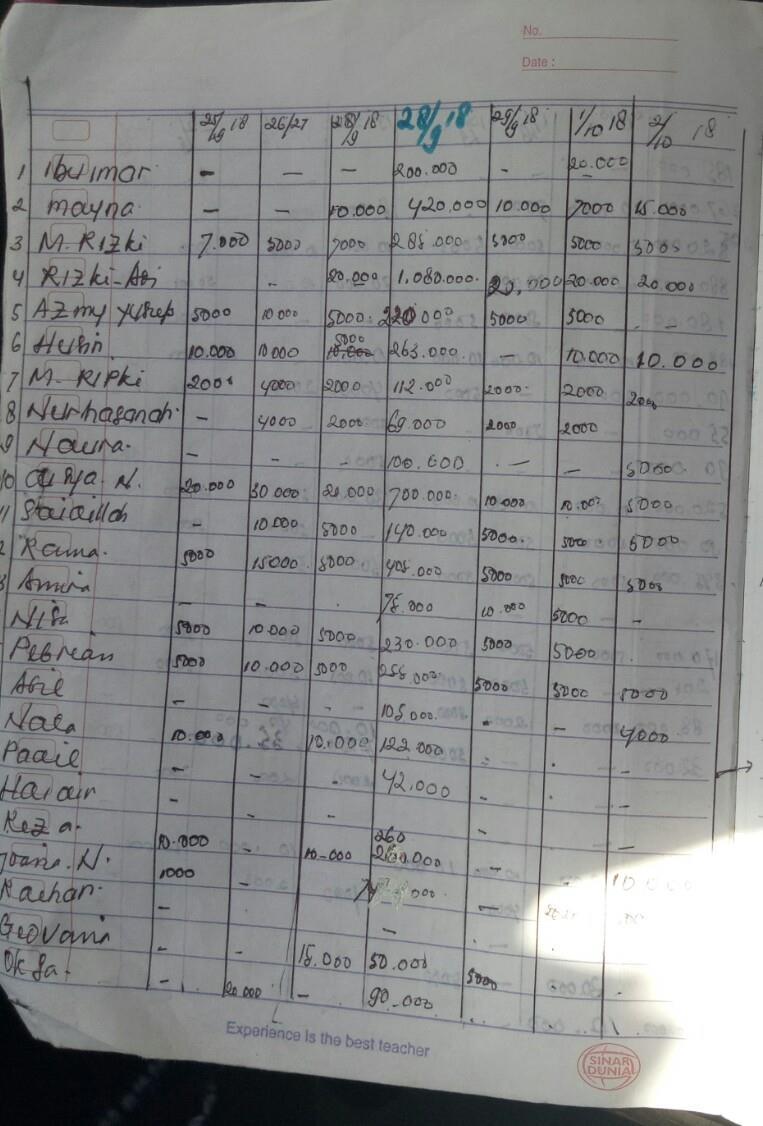 No.
Date :
25/9 18 26/27 28/9 18 28/9 18 29/9 18 1/10 18 2/10 18
1 Ibu imar - - - 200.000 - 20.000
2 mayna - - 10.000 420.000 10.000 7000 15.000
3 M. RIZKi 7.000 5000 7000 285.000 5000 5000 5000
4 RIZKi-Abi - 20.000 1.080.000. 20.000 20.000 20.000
5 AZmy yusep 5000 10.000 5000. 220.000 5000 5000 -
6 Husn 10.000 10.000 5000 263.000. - 10.000 10.000
7 M. RIPKi 2000 4000 2000 112.000 2000. 2000 2000
8 Nurhasanah. - 4000 2000 69.000 2000 2000
9 Naura. - - - 100.000 - - 5000.
10 N. 20.000 30.000 20.000 700.000. 10.000 10.000 5000
11 - 10.000 5000 140.000 5000. 5000 5000
Rama. 5000 15000 5000 405.000 5000 5000 5000
Amira - - . 75.000 10.000 5000 -
Nisa 5000 10.000 5000 230.000 5000 5000 .
Pebrian 5000 10.000 5000 255.000. 5000 5000 5000
Abil - - 105.000. - - 4000
Nala 10.000 10.000 122.000 . -
Paail - - - 42.000 - . -
- - - -
Reza. 10.000 - 10.000 260 .000 - 10.000
N. 1000 - 000
Raihan. - - -
Geovani - - 15.000 50.000 5000 . .
Oksa. - 20.000 - 90.000
Experience is the best teacher
SINAR
DUNIA